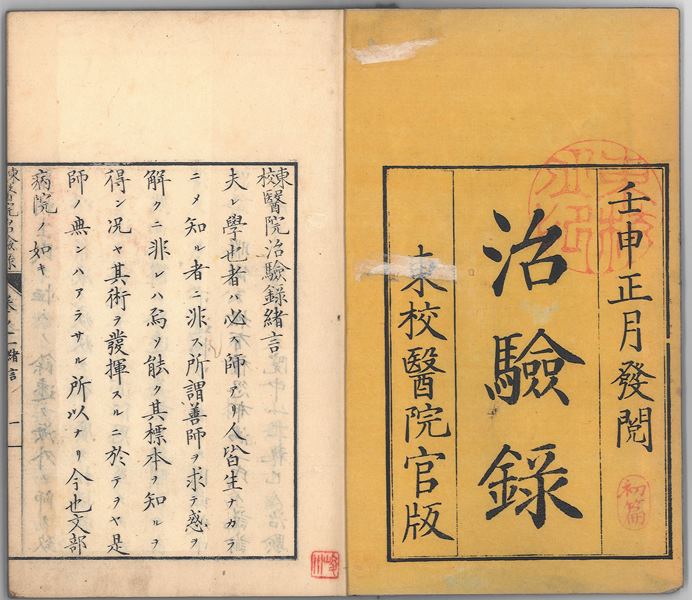 壬申正月發閲
初篇
治驗錄
東校醫院官版
東校醫院治驗錄緒言
夫レ學也者ハ必ス師アリ人皆生ナカラ
ニメ知ル者ニ非ス所謂善師ヲ求テ惑ヲ
解クニ非レハ烏ソ能ク其標本ヲ知ルヲ
得ン况ヤ其術ヲ發揮スルニ於テヲヤ是
師ノ無ンハアラサル所以ナリ今也文部
病院ノ如キ
東校醫院治驗錄 卷之一 緒言 一